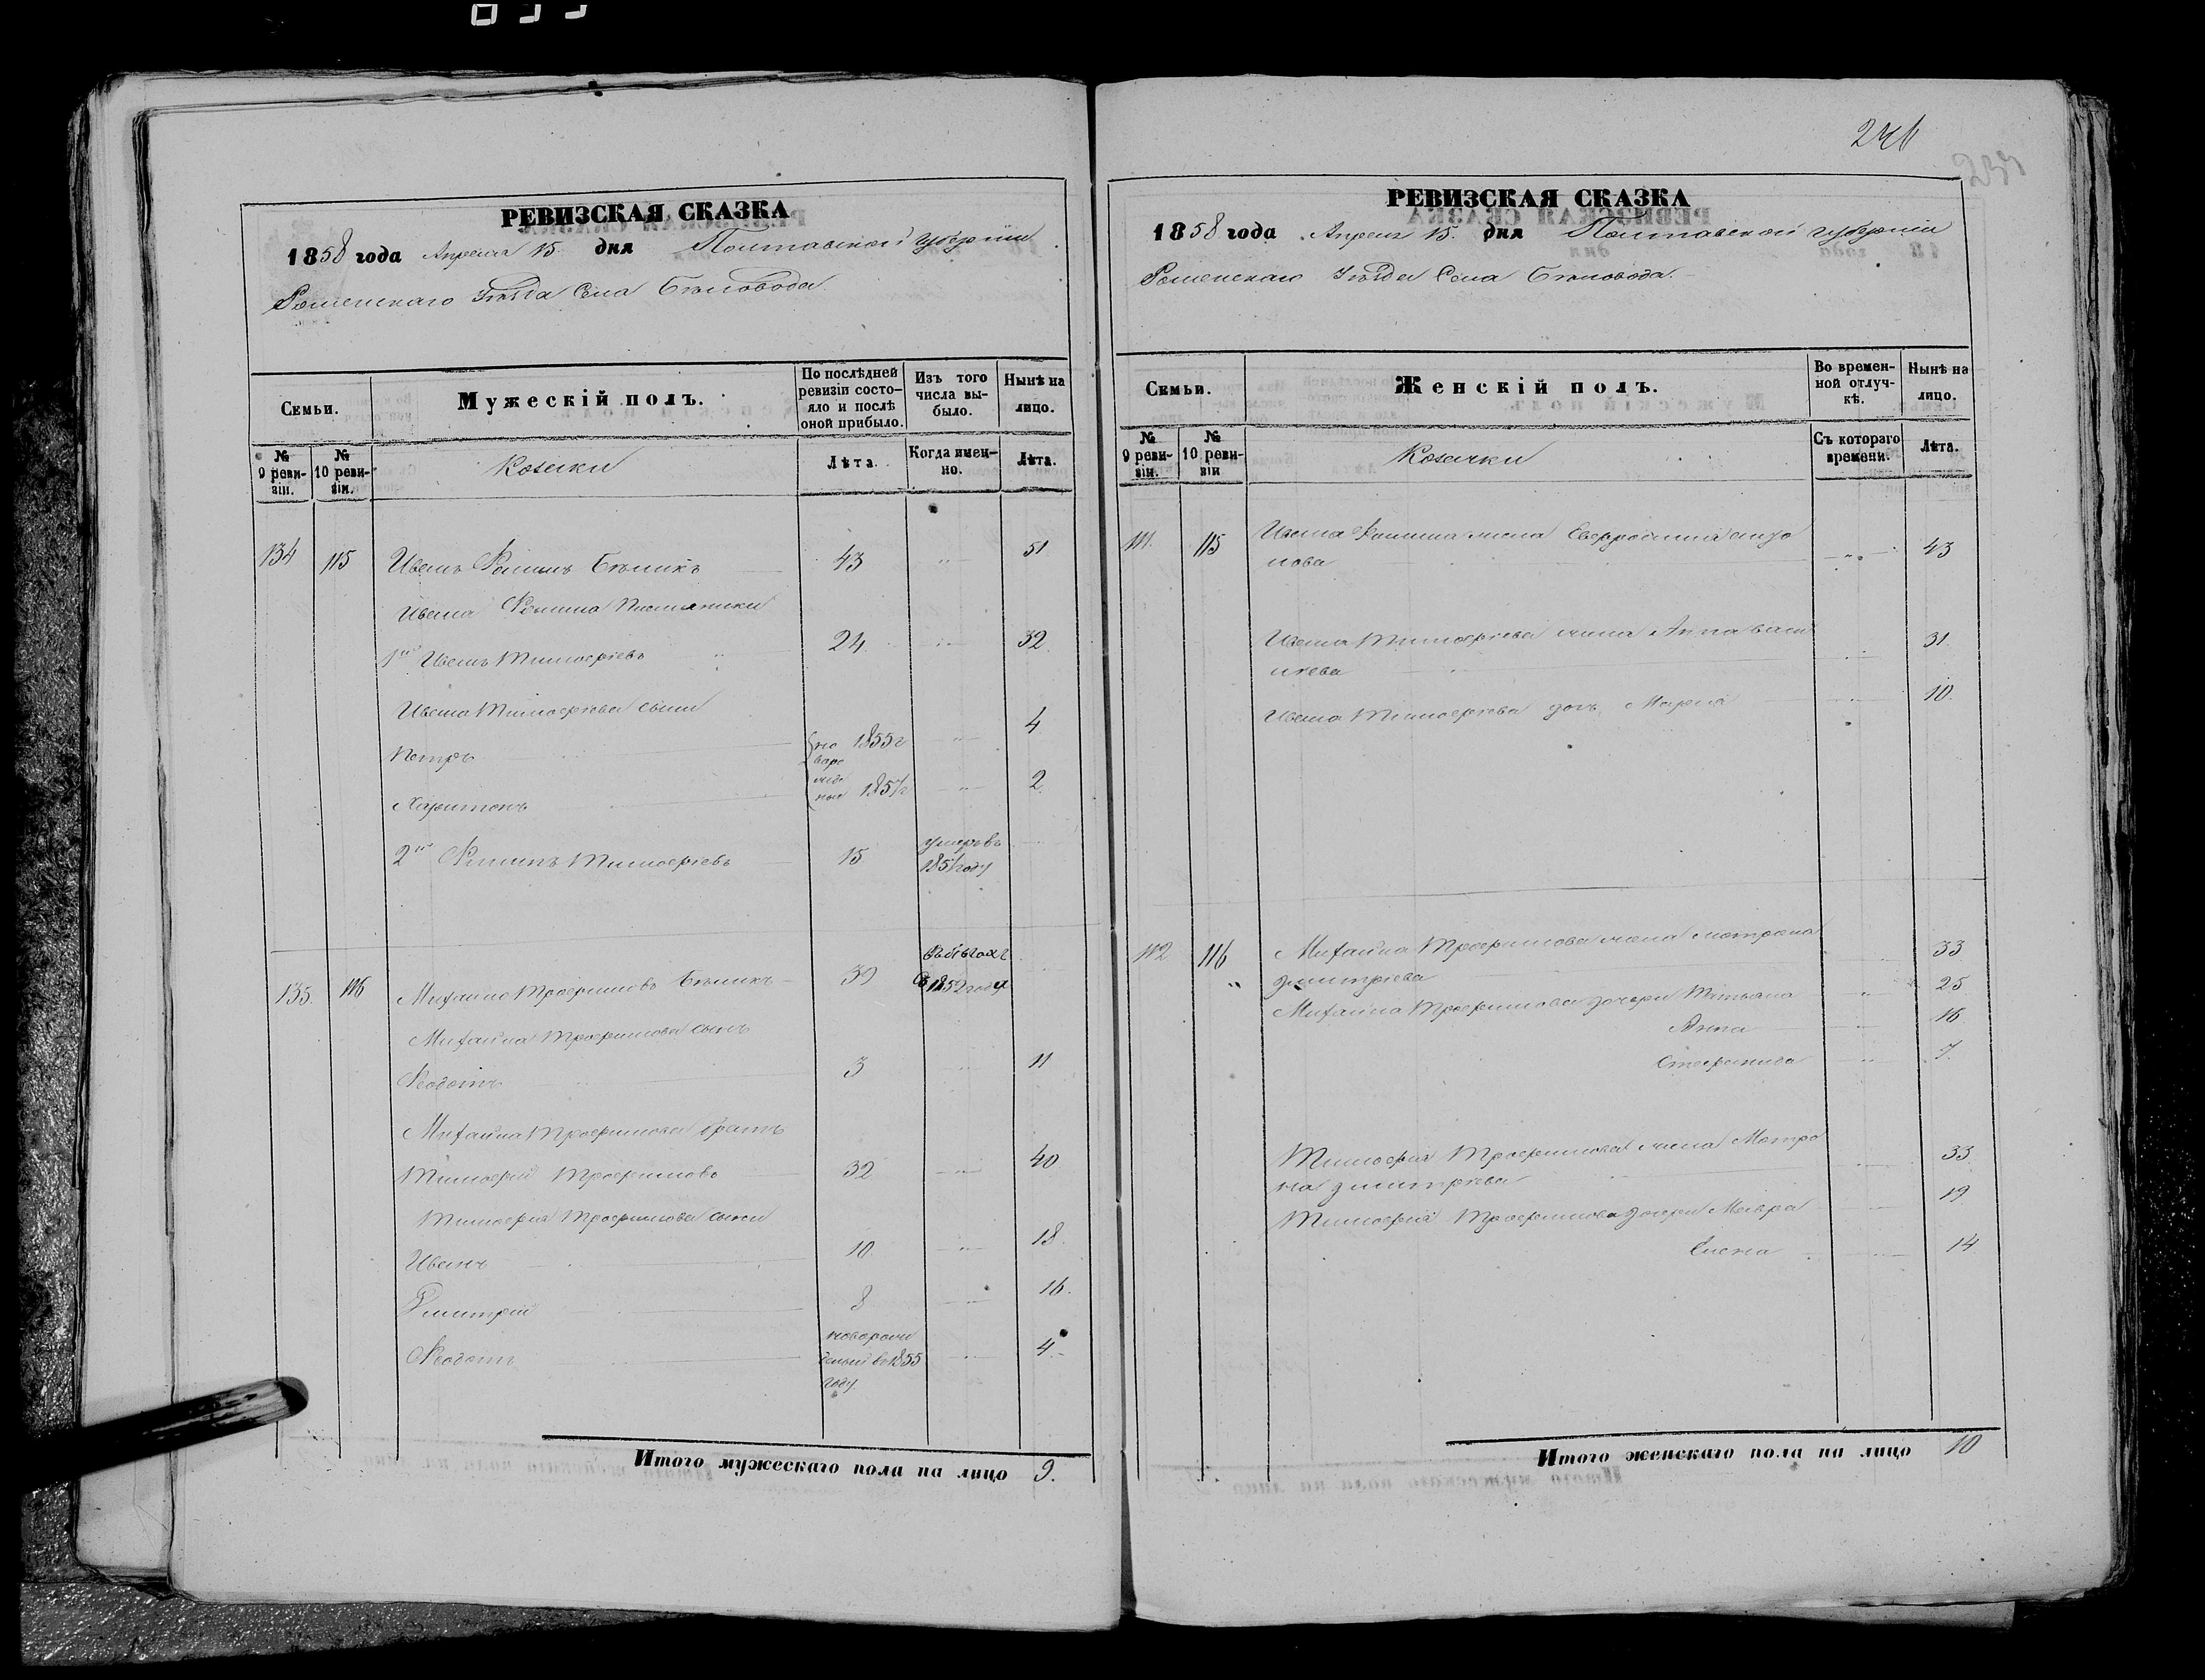 246
РЕВИЗСКАЯ СКАЗКА
1858 года Апреля 15 дня Полтавской губерніи
Роменскаго Уѣзда Села Бѣловода.
Семьи.
Мужескій полъ.
По послѣдней ревизіи состо-
яло и послѣ
оной прибыло.
Изъ того
числа вы-
было.
Нынѣ на
лицо.
№
9 реви-
зіи.
№
10 реви-
зіи.
Козаки
Лѣта.
Когда имен-
но.
Лѣта.
134 115 Иванъ Бѣликъ 43 51
Ивана племяники
1й Иванъ Тимофѣевъ 24 32
Ивана Тимофѣева сыни
Петръ 1855г 4
Харитонъ 2
2й Тимофѣевъ 15 умеръ въ
году
135. 116 Михайло Трофимовъ Бѣликъ 39 1852 году
Михайла Трофимова сынъ
Федотъ 3 11
Михайла Трофимова братъ
Тимофей Трофимовъ 32 40
Тимофея Трофимова сыни
Иванъ 10 18.
Дмитрій 8 16.
Федотъ новорож
денный въ 1855 4
году.
Итого мужескаго пола на лицо 9.
РЕВИЗСКАЯ СКАЗКА
1858 года Апреля 15. дня Полтавской губерніи
Роменскаго Уѣзда Села Бѣловода.
Семьи.
Женскій полъ.
Во времен-
ной отлуч-
кѣ.
Нынѣ на
лицо.
№
9 реви-
зіи.
№
10 реви-
зіи
Козачки
Съ котораго
времени.
Лѣта.
111. 115 Ивана жена
нова 43
Ивана Тимофѣева жена Анна Васи
лиева 31.
Ивана Тимофѣева дочь Марія 10.
112 116 Михайла Трофимова жена Мотрона
Дмитріева 33
Михайла Трофимова дочери Татьяна 25
Анна 16
Стефанида 7.
Тимофея Трофимова жена Мотро
на Дмитріева 33
Тимофея Трофимова дочери Мавра 19
Елена 14
Итого женскаго пола на лицо 10